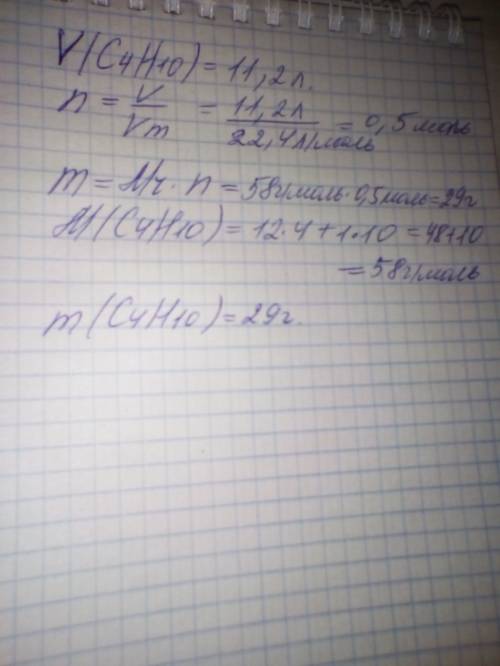 V(C4H10) = 11,2л.
n = V/Vm = 11,2л/22,4л/моль = 0,5моль
m = Mr · n = 58г/моль · 0,5моль = 29г
M(C4H10) = 12·4 + 1·10 = 48+10
= 58г/моль
m(C4H10) = 29г.